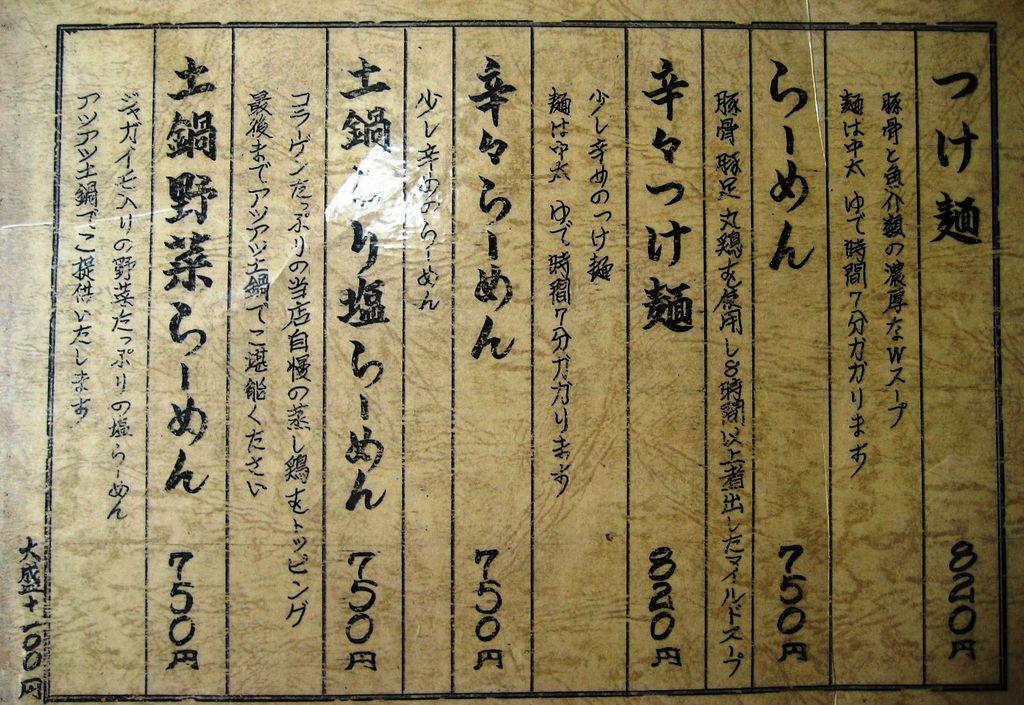 つけ麺 820円
豚骨と魚介類の濃厚なWスープ
麺は中太 ゆで時間7分カカリます
らーめん 750円
豚骨 豚足 丸鶏を使用し8時間以上煮出したマイルドスープ
辛々つけ麺 820円
少し辛めのつけ麺
麺は中太 ゆで時間7分カカリます
辛々らーめん 750円
少し辛めのらーめん
土鍋 り塩らーめん 750円
コラーゲンたっぷりの当店自慢の蒸し鶏をトッピング
最後までアツアツ土鍋でご堪能ください
土鍋野菜らーめん 750円
ジャガイモ入りの野菜たっぷりの塩らーめん
アツアツ土鍋でご提供いたします
大盛+100円